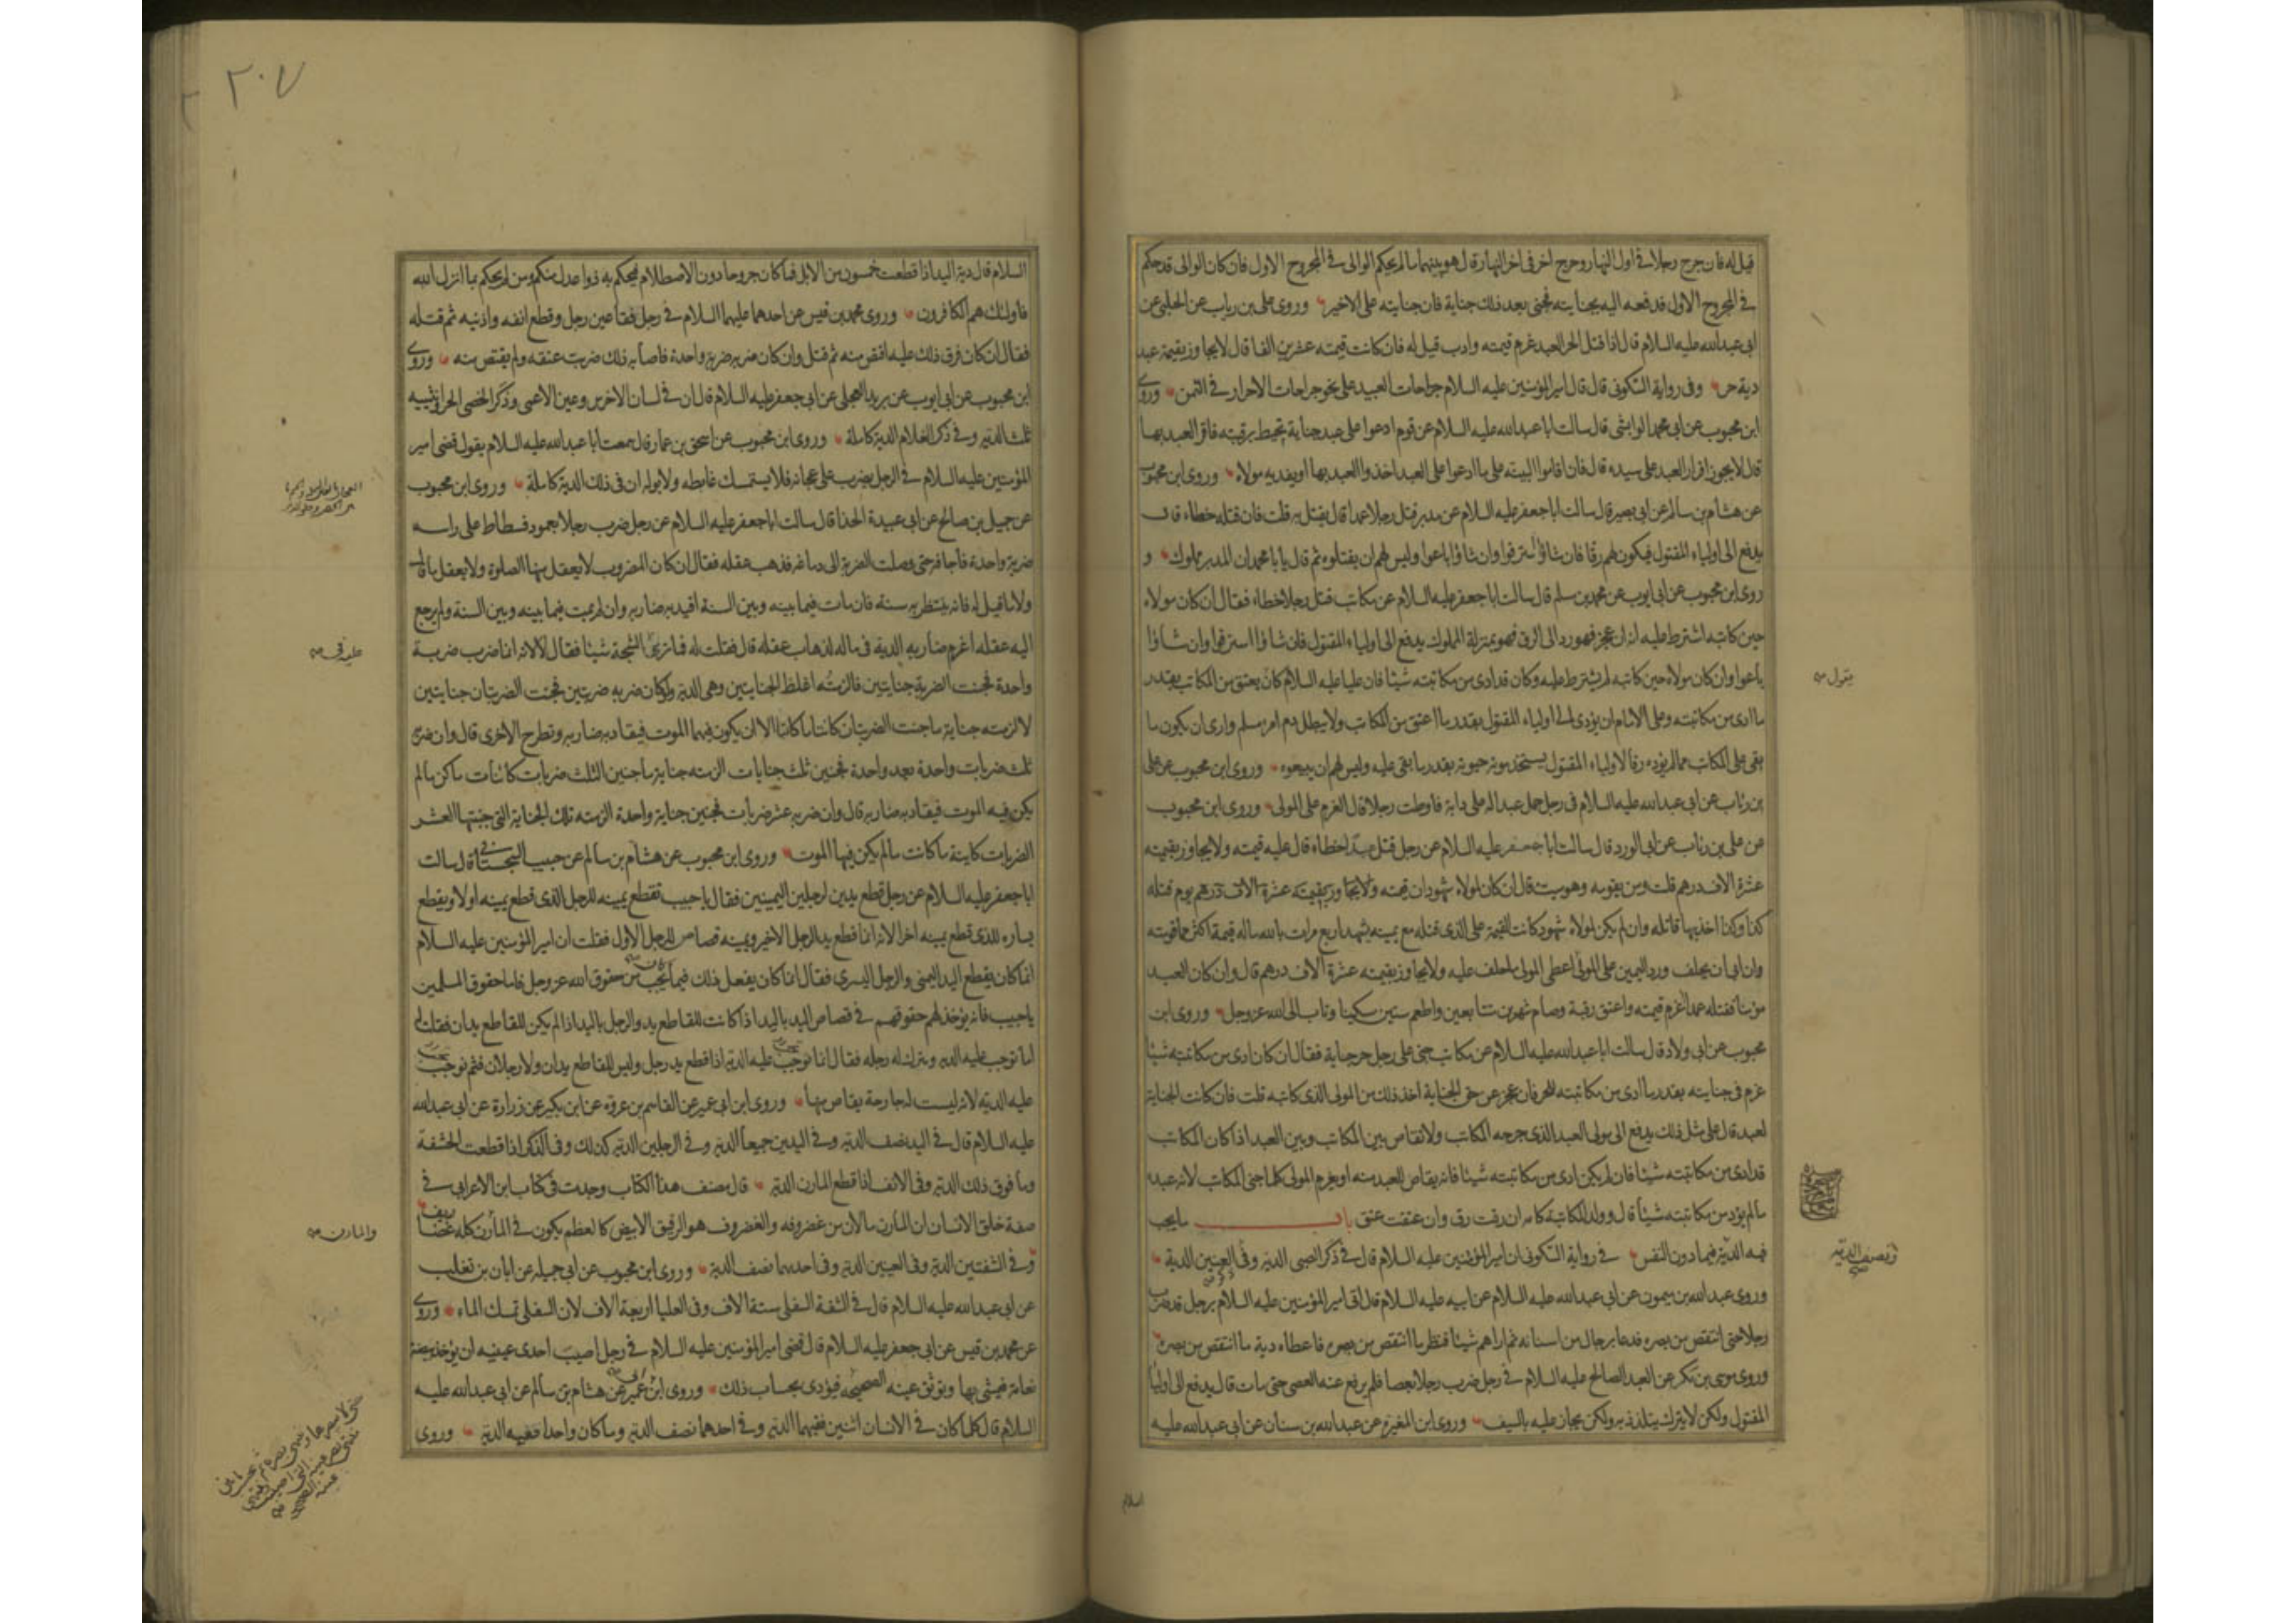 قيل له فان جرح رجلا في اول النهار وجرح اخر في اخر النهار قال هو بينهما ما لم يحكم الوالي في المجروح الاول فان كان الوالي قد حكم
في المجروح الاول فدفعه اليه بجنايته فجنى بعد ذلك جناية فان جنايته على الاخير وروى علي بن رياب عن الحلبي عن
ابي عبدالله عليه السلام قال اذا قتل الحر العبد غرم قيمته وادب قيل له فان كانت قيمته عشرين الفا قال لا يجاوز بقيمة عبد
دية حر وفي رواية السكوني قال قال امير المؤمنين عليه السلام جراحات العبيد على نحو جراحات الاحرار في الثمن وروى
ابن محبوب عن ابي محمد الوابشي قال سالت ابا عبدالله عليه السلام عن قوم ادعوا على عبد جناية تحيط برقبته فاقر العبد بها
قال لا يجوز اقرار العبد على سيده قال فان اقاموا البينة على ما ادعوا على العبد اخذوا العبد بها او يفديه مولاه وروى ابن محبوب
عن هشام بن سالم عن ابي بصير قال سالت ابا جعفر عليه السلام عن مدبر قتل رجلا عمدا قال يقتل به قلت فان قتله خطاء قال
يدفع الى اولياء المقتول فيكون لهم رقا فان شاؤا استرقوا وان شاؤا باعوا وليس لهم ان يقتلوه ثم قال يا با محمد ان المدبر مملوك و
روى ابن محبوب عن ابي ايوب عن محمد بن مسلم قال سالت ابا جعفر عليه السلام عن مكاتب قتل رجلا خطاء فقال ان كان مولاه
حين كاتبه اشترط عليه انه ان عجز فهو رد الى الرق فهو بمنزلة المملوك يدفع الى اولياء المقتول فان شاؤا استرقوا وان شاؤا
باعوا وان كان مولاه حين كاتبه لم يشترط عليه وكان قد ادى من مكاتبته شيئا فان عليا عليه السلام كان يعتق من المكاتب بقدر
يقول
ما ادى من مكاتبته وعلى الامام ان يؤدي الى اولياء المقتول بقدر ما اعتق من المكاتب ولا يبطل دم امرء مسلم وارى ان يكون ما
بقي على المكاتب مما لم يؤده رقا لاولياء المقتول يستخدمونه حيوته بقدر ما بقي عليه وليس لهم ان يبيعوه وروى ابن محبوب عن علي
بن رئاب عن ابي عبدالله عليه السلام في رجل حمل عبدا له على دابة فاوطت رجلا قال الغرم على المولى وروى ابن محبوب
عن علي بن رئاب عن ابي الورد قال سالت ابا جعفر عليه السلام عن رجل قتل عبدا خطاء قال عليه قيمته ولا يجاوز بقيمته
عشرة الاف درهم قلت ومن يقومه وهو ميت قال ان كان لمولاه شهود ان قيمته ولا يجاوز بقيمته عشرة الاف درهم يوم قتله
كذا وكذا اخذ بها قاتله وان لم يكن لمولاه شهود كانت القيمة على الذي قتله مع يمينه يشهد اربع مرات بالله ما له قيمة اكثر مما قومته
وان ابى ان يحلف ورد اليمين على المولى اعطى المولى ما حلف عليه ولا يجاوز بقيمته عشرة الاف درهم قال وان كان العبد
مؤمنا فقتله عمدا غرم قيمته واعتق رقبة وصام شهرين متتابعين واطعم ستين مسكينا وتاب الى الله عز وجل وروى ابن
محبوب عن ابي ولاد قال سالت ابا عبدالله عليه السلام عن مكاتب جنى على رجل حر جناية فقال ان كان ادى من مكاتبته شيئا
غرم في جنايته بقدر ما ادى من مكاتبته للحر فان عجز عن حق الجناية اخذ ذلك من المولى الذي كاتبه قلت فان كانت الجناية
لعبد قال على مثل ذلك يدفع الى مولى العبد الذي جرحه المكاتب ولا تقاص بين المكاتب وبين العبد اذا كان المكاتب
قد ادى من مكاتبته شيئا فان لم يكن ادى من مكاتبته شيئا فانه يقاص للعبد منه او يغرم المولى كلما جنى المكاتب لانه عبده
ما لم يؤد من مكاتبته شيئا قال وولد المكاتبة كامه ان رقت رق وان عتقت عتق باب ما يجب
فيه الدية فيما دون النفس في رواية السكوني ان امير المؤمنين عليه السلام قال في ذكر الصبي الدية وفي العنين الدية
ونصف الدية
وروى عبدالله بن ميمون عن ابي عبدالله عليه السلام عن ابيه عليه السلام قال اتي امير المؤمنين عليه السلام برجل قد ضرب
رجلا حتى انتقص من بصره فدعا برجال من اسنانه ثم اراهم شيئا فنظر ما انتقص من بصره فاعطاه دية ما انتقص من بصره
وروى موسى بن بكر عن العبد الصالح عليه السلام في رجل ضرب رجلا بعصا فلم يرفع عنه العصى حتى مات قال يدفع الى اولياء
المقتول ولكن لا يترك يتلذذ به ولكن يجاز عليه بالسيف وروى ابن المغيرة عن عبدالله بن سنان عن ابي عبدالله عليه
السلام
٢٠٧
السلام قال دية اليد اذا قطعت خمسون من الابل فما كان جروحا دون الاصطلام فيحكم به ذوا عدل منكم ومن لم يحكم بما انزل الله
فاولئك هم الكافرون وروى محمد بن قيس عن احدهما عليهما السلام في رجل فقأ عين رجل وقطع انفه واذنيه ثم قتله
فقال ان كان فرق ذلك عليه اقتص منه ثم قتل وان كان ضربه ضربة واحدة فاصابه ذلك ضربت عنقه ولم يقتص منه وروى
ابن محبوب عن ابي ايوب عن بريد العجلي عن ابي جعفر عليه السلام قال ان في لسان الاخرس وعين الاعمى وذكر الخصي الحر انثييه
ثلث الدية وفي ذكر الغلام الدية كاملة وروى ابن محبوب عن اسحق بن عمار قال سمعت ابا عبدالله عليه السلام يقول قضى امير
المؤمنين عليه السلام في الرجل يضرب على عجانه فلا يستمسك غايطه ولا بوله ان في ذلك الدية كاملة وروى ابن محبوب
عن جميل بن صالح عن ابي عبيدة الحذا قال سالت ابا جعفر عليه السلام عن رجل ضرب رجلا بعمود فسطاط على راسه
ضربة واحدة فاجافه حتى وصلت الضربة الى دماغه فذهب عقله فقال ان كان المضروب لا يعقل منها الصلوة ولا يعقل ما قال
ولا ما قيل له فانه ينتظر به سنة فان مات فيما بينه وبين السنة اقيد به ضاربه وان لم يمت فيما بينه وبين السنة ولم يرجع
اليه عقله اغرم ضاربه الدية في ماله لذهاب عقله قال فقلت له فما ترى الشجة شيئا فقال لا لانه انما ضرب ضربة
عليه في
واحدة فجنت الضربة جنايتين فالزمته اغلظ الجنايتين وهي الدية ولو كان ضربه ضربتين فجنت الضربتان جنايتين
لالزمته جناية ما جنت الضربتان كائنا ما كانتا الا ان يكون فيهما الموت فيقاد به ضاربه وتطرح الاخرى قال وان ضربه
ثلث ضربات واحدة بعد واحدة فجنين ثلث جنايات الزمته جناية ما جنين الثلث ضربات كائنات ما كن ما لم
يكن فيه الموت فيقاد به ضاربه قال وان ضربه عشر ضربات فجنين جناية واحدة الزمته تلك الجناية التي جنتها العشر
الضربات كاينة ما كانت ما لم يكن فيها الموت وروى ابن محبوب عن هشام بن سالم عن حبيب السجستاني قال سالت
ابا جعفر عليه السلام عن رجل قطع يدين لرجلين اليمينين فقال يا حبيب تقطع يمينه للرجل الذي قطع يمينه اولا ويقطع
يساره للذي قطع يمينه اخرا لانه انما قطع يد الرجل الاخير ويمينه قصاص للرجل الاول فقلت ان امير المؤمنين عليه السلام
انما كان يقطع اليد اليمنى والرجل اليسرى فقال انما كان يفعل ذلك فيما يجب من حقوق الله عز وجل فاما حقوق المسلمين
يا حبيب فانه يؤخذ لهم حقوقهم في قصاص اليد باليد اذا كانت للقاطع يد والرجل باليد اذا لم يكن للقاطع يدان فقلت له
اما توجب عليه الدية ويترك له رجله فقال انما توجب عليه الدية اذا قطع يد رجل وليس للقاطع يدان ولا رجلان فثم توجب
عليه الدية لانه ليست له جارحة يقاص منها وروى ابن ابي عمير عن القاسم بن عروة عن ابن بكير عن زرارة عن ابي عبدالله
عليه السلام قال في اليد نصف الدية وفي اليدين جميعا الدية وفي الرجلين الدية كذلك وفي الذكر اذا قطعت الحشفة
وما فوق ذلك الدية وفي الانف اذا قطع المارن الدية قال مصنف هذا الكتاب وجدت في كتاب ابن الاعرابي في
صفة خلق الانسان ان المارن ما لان من غضروفه والغضروف هو الرقيق الابيض كالعظم يكون في المأرن كله غضاريف
والمارن
وفي الشفتين الدية وفي العينين الدية وفي احدهما نصف الدية وروى ابن محبوب عن ابي جميلة عن ابان بن تغلب
عن ابي عبدالله عليه السلام قال في الشفة السفلى ستة الاف وفي العليا اربعة الاف لان السفلى تمسك الماء وروى
عن محمد بن قيس عن ابي جعفر عليه السلام قال قضى امير المؤمنين عليه السلام في رجل اصيب احدى عينيه ان يؤخذ بيضة
نعامة فيمشي بها وتوثق عينه الصحيحة فيؤدي بحساب ذلك وروى ابن ابي عمير عن هشام بن سالم عن ابي عبدالله عليه
السلام قال كلما كان في الانسان اثنين ففيهما الدية وفي احدهما نصف الدية وما كان واحدا ففيه الدية وروى